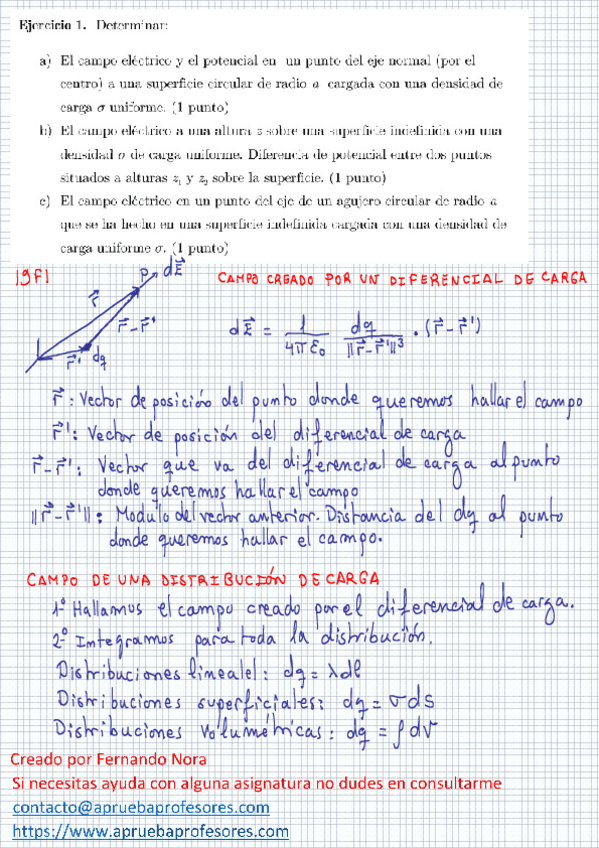 Ejercicio 1. Determinar:
a) El campo eléctrico y el potencial en un punto del eje normal (por el
centro) a una superficie circular de radio a cargada con una densidad de
carga σ uniforme. (1 punto)
b) El campo eléctrico a una altura z sobre una superficie indefinida con una
densidad σ de carga uniforme. Diferencia de potencial entre dos puntos
situados a alturas z₁ y z₂ sobre la superficie. (1 punto)
c) El campo eléctrico en un punto del eje de un agujero circular de radio a
que se ha hecho en una superficie indefinida cargada con una densidad de
carga uniforme σ. (1 punto)
19F1
P dE⃗
CAMPO CREADO POR UN DIFERENCIAL DE CARGA
r⃗
r⃗-r⃗'
r⃗' dq
dE⃗ = 1/(4πε₀) dq/‖r⃗-r⃗'‖³ · (r⃗-r⃗')
r⃗: Vector de posición del punto donde queremos hallar el campo
r⃗': Vector de posición del diferencial de carga
r⃗-r⃗': Vector que va del diferencial de carga al punto
donde queremos hallar el campo
‖r⃗-r⃗'‖: Modulo del vector anterior. Distancia del dq al punto
donde queremos hallar el campo.
CAMPO DE UNA DISTRIBUCIÓN DE CARGA
1º Hallamos el campo creado por el diferencial de carga.
2º Integramos para toda la distribución.
Distribuciones lineales: dq = λdl
Distribuciones superficiales: dq = σds
Distribuciones volumétricas: dq = ρdv
Creado por Fernando Nora
Si necesitas ayuda con alguna asignatura no dudes en consultarme
contacto@apruebaprofesores.com
https://www.apruebaprofesores.com